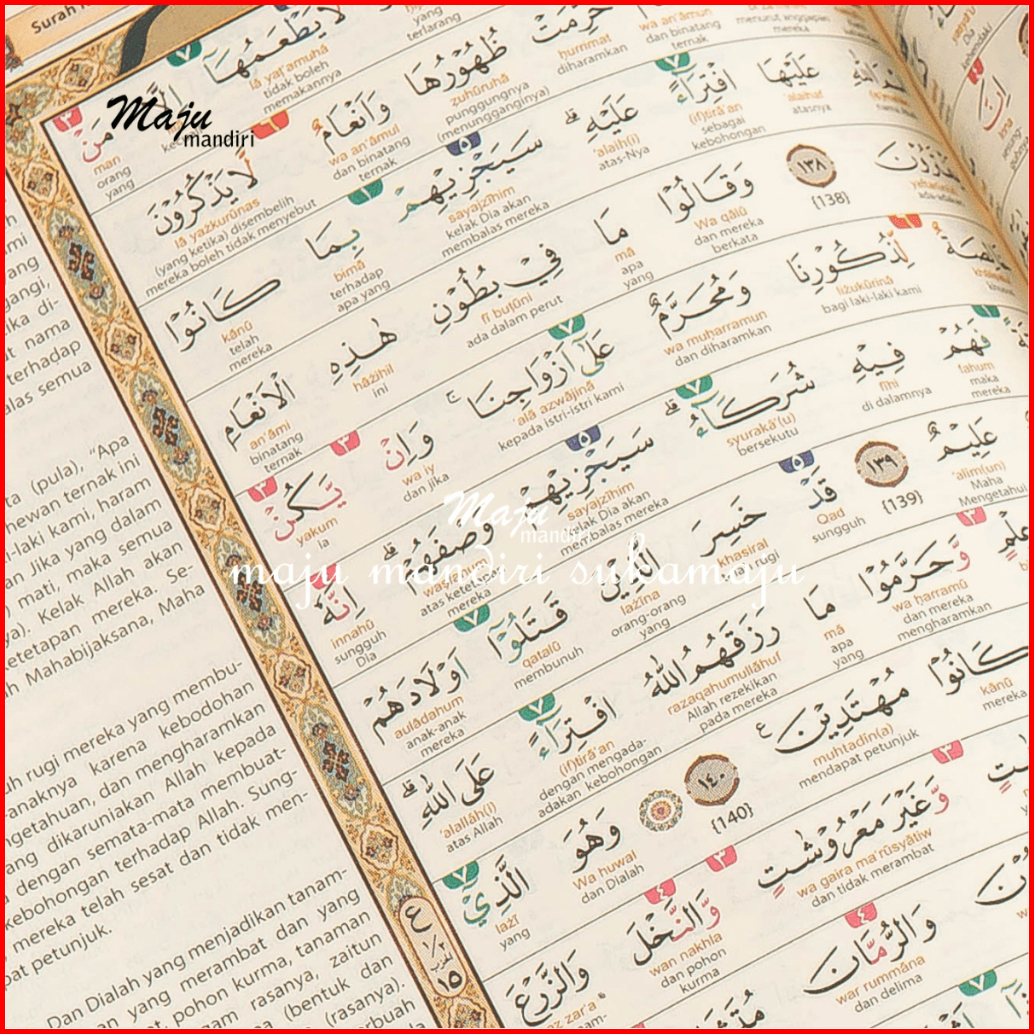 Surah
Maju
mandiri
لَّا يَطْعَمُهَآ اِلَّا مَنْ
lā yaṭ'amuhā
tidak boleh memakannya
man
orang yang
حُرِّمَتْ ظُهُوْرُهَا وَاَنْعَامٌ لَّا يَذْكُرُوْنَ
wa an'āmun
dan binatang ternak
ḥurrimat
diharamkan
ẓuhūruhā
punggungnya (menungganginya)
wa an'āmul
dan binatang ternak
lā yażkurūnas
(yang ketika) disembelih mereka boleh tidak menyebut
عَلَيْهَا افْتِرَاۤءً عَلَيْهِۗ سَيَجْزِيْهِمْ بِمَا كَانُوْا
'alaihaf
atasnya
(if)tirā'an
sebagai kebohongan
'alaih(i)
atas-Nya
sayajzīhim
kelak Dia akan membalas mereka
bimā
terhadap apa yang
kānū
telah mereka
يَفْتَرُوْنَ ١٣٨ وَقَالُوْا مَا فِيْ بُطُوْنِ هٰذِهِ الْاَنْعَامِ
{138}
Wa qālū
dan mereka berkata
mā
apa yang
fī buṭūni
ada dalam perut
hāżihil
ini
an'āmi
binatang ternak
خَالِصَةٌ لِّذُكُوْرِنَا وَمُحَرَّمٌ عَلٰٓى اَزْوَاجِنَاۚ وَاِنْ يَّكُنْ
liżukūrinā
bagi laki-laki kami
wa muḥarramun
dan diharamkan
'alā azwājinā
kepada istri-istri kami
wa iy
dan jika
yakum
ia
فَهُمْ فِيْهِ شُرَكَاۤءُۗ سَيَجْزِيْهِمْ وَصْفَهُمْۗ اِنَّهٗ
fahum
maka mereka
fīhi
di dalamnya
syurakā'(u)
bersekutu
sayajzīhim
kelak Dia akan membalas mereka
atas ketetapan mereka
innahū
sungguh Dia
عَلِيْمٌ ١٣٩ قَدْ خَسِرَ الَّذِيْنَ قَتَلُوْٓا اَوْلَادَهُمْ
'alīm(un)
Maha Mengetahui
{139}
Qad
sungguh
khasiral
rugi
lażīna
orang-orang yang
qatalū
membunuh
aulādahum
anak-anak mereka
عِلْمٍ وَّحَرَّمُوْا مَا رَزَقَهُمُ اللّٰهُ افْتِرَاۤءً عَلَى اللّٰهِۗ
wa ḥarramū
dan mereka mengharamkan
mā
apa yang
razaqahumullāhuf
Allah rezekikan pada mereka
(if)tirā'an
dengan mengada-adakan kebohongan
'alallāh(i)
atas Allah
كَانُوْا مُهْتَدِيْنَ ١٤٠ وَهُوَ الَّذِيْٓ
kānū
mereka
muhtadīn(a)
mendapat petunjuk
{140}
Wa huwal
dan Dialah
lażī
yang
وَّغَيْرَ مَعْرُوْشٰتٍ وَّالنَّخْلَ وَالزَّرْعَ
wa gaira ma'rūsyātiw
dan tidak merambat
wan nakhla
dan pohon kurma
az zar'a
وَالرُّمَّانَ
war rummāna
dan delima
ع
١٥
Maju
mandiri
maju mandiri sukamaju
terhadap
alas semua
ta (pula), "Apa
hewan ternak ini
i-laki kami, haram
an Jika yang dalam
) mati, maka semua
ya). Kelak Allah akan
etetapan mereka. Se-
h Mahabijaksana, Maha
uh rugi mereka yang membu-
anaknya karena kebodohan
ngetahuan, dan mengharamkan
ang dikaruniakan Allah kepada
dengan semata-mata membuat-
kebohongan terhadap Allah. Sung-
mereka telah sesat dan tidak men-
pat petunjuk.
Dan Dialah yang menjadikan tanam-
an yang merambat dan yang
pohon kurma, tanaman
rasanya, zaitun
(bentuk dan
(rasanya).